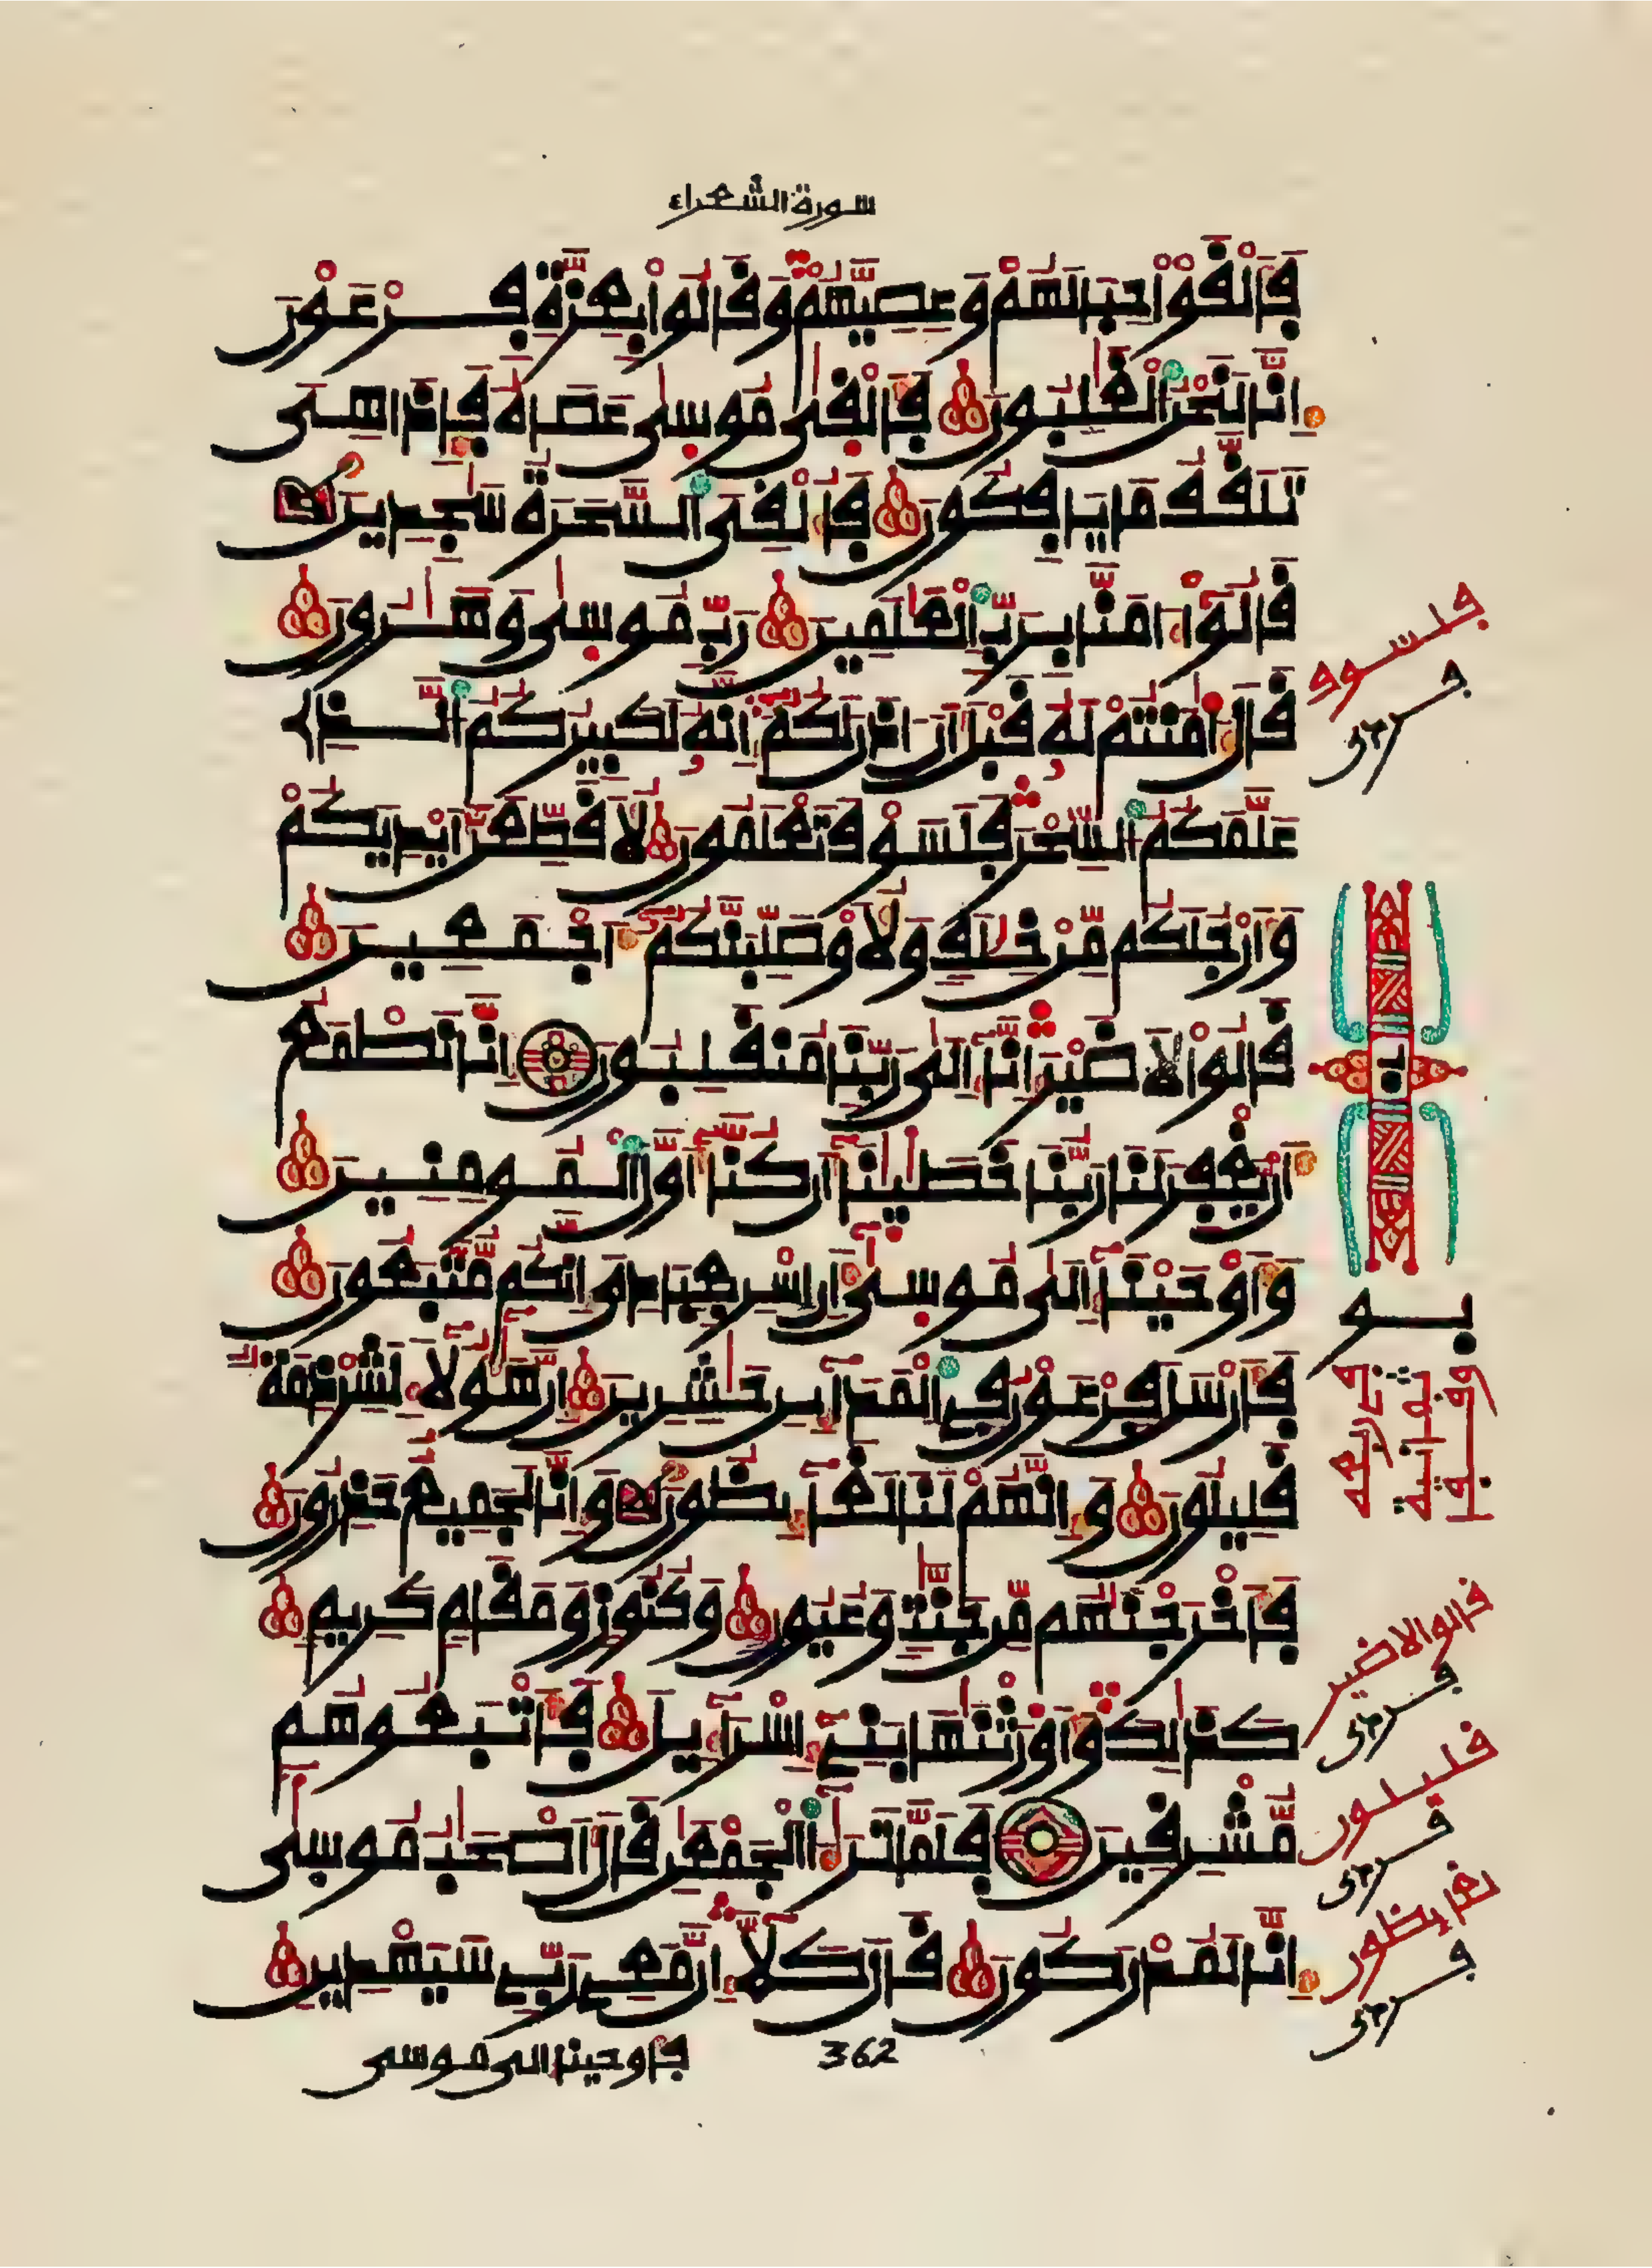 سورة الشعراء
فَأَلْقَوْاْ حِبَالَهُمْ وَعِصِيَّهُمْ وَقَالُواْ بِعِزَّةِ فِرْعَوْنَ
إِنَّا لَنَحْنُ الْغَٰلِبُونَ فَأَلْقَىٰ مُوسَىٰ عَصَاهُ فَإِذَا هِىَ
تَلَقَّفُ مَا يَافِكُونَ فَأُلْقِىَ السَّحَرَةُ سَٰجِدِينَ
قَالُواْ ءَامَنَّا بِرَبِّ الْعَٰلَمِينَ رَبِّ مُوسَىٰ وَهَٰرُونَ
قَالَ ءَا۬مَنتُمْ لَهُ قَبْلَ أَنْ ءَاذَنَ لَكُمُ إِنَّهُ لَكَبِيرُكُمُ الَّذِے
عَلَّمَكُمُ السِّحْرَ فَلَسَوْفَ تَعْلَمُونَ لَأُقَطِّعَنَّ أَيْدِيَكُمْ
وَأَرْجُلَكُم مِّنْ خِلَٰفٍ وَلَأُوصَلِّبَنَّكُمُ أَجْمَعِينَ
قَالُواْ لَا ضَيْرَ إِنَّا إِلَىٰ رَبِّنَا مُنقَلِبُونَ إِنَّا نَطْمَعُ
أَنْ يَّغْفِرَ لَنَا رَبُّنَا خَطَٰيَٰنَا أَن كُنَّا أَوَّلَ الْمُومِنِينَ
وَأَوْحَيْنَا إِلَىٰ مُوسَىٰ أَنِ اسْرِ بِعِبَادِىَ إِنَّكُم مُّتَّبَعُونَ
فَأَرْسَلَ فِرْعَوْنُ فِے الْمَدَآئِنِ حَٰشِرِينَ إِنَّ هَٰؤُلَآءِ لَشِرْذِمَةٌ
قَلِيلُونَ وَإِنَّهُمْ لَنَا لَغَآئِظُونَ وَإِنَّا لَجَمِيعٌ حَذِرُونَ
فَأَخْرَجْنَٰهُم مِّن جَنَّٰتٍ وَعُيُونٍ وَكُنُوزٍ وَمَقَامٍ كَرِيمٍ
كَذَٰلِكَ وَأَوْرَثْنَٰهَا بَنِے إِسْرَآءِيلَ فَأَتْبَعُوهُم
مُّشْرِقِينَ فَلَمَّا تَرَٰٓءَا الْجَمْعَٰنِ قَالَ أَصْحَٰبُ مُوسَىٰ
إِنَّا لَمُدْرَكُونَ قَالَ كَلَّا إِنَّ مَعِے رَبِّے سَيَهْدِينِ
362
فأوحينا إلى موسى
فلسوف
قالوا لا ضير
قليلون
لغايظون